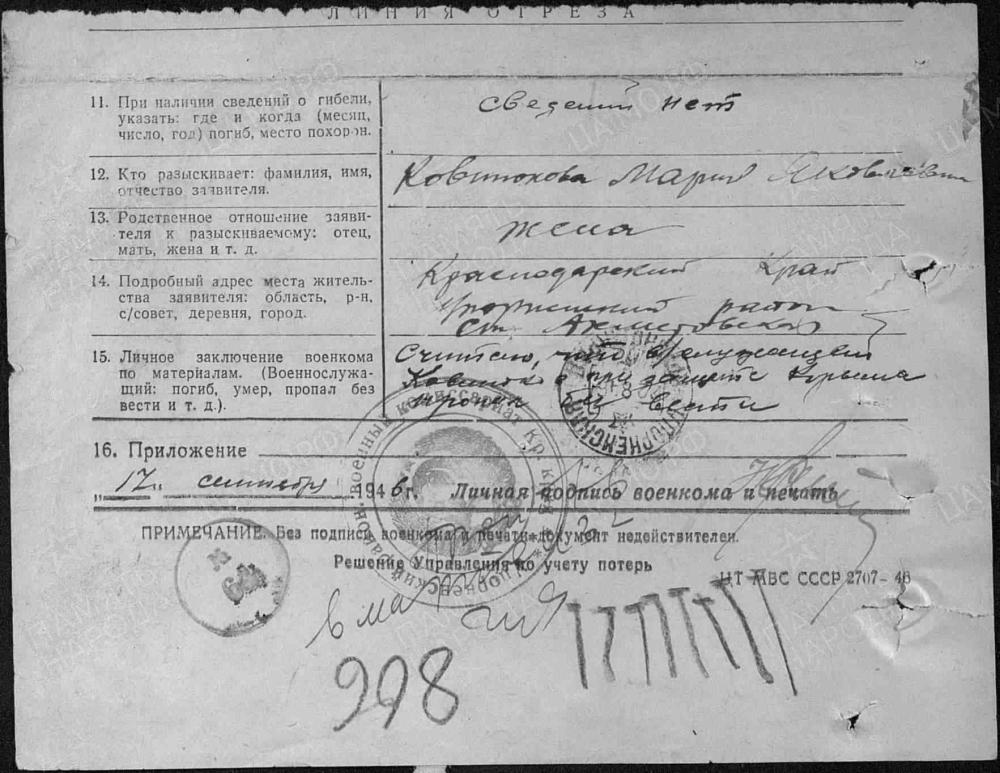 ЛИНИЯ ОТРЕЗА
11. При наличии сведений о гибели,
указать: где и когда (месяц,
число, год) погиб, место похорон.
сведений нет
12. Кто разыскивает: фамилия, имя,
отчество заявителя.
Ковтюхова Мария Яковлевна
13. Родственное отношение заяви-
теля к разыскиваемому: отец,
мать, жена и т. д.
жена
14. Подробный адрес места житель-
ства заявителя: область, р-н,
с/совет, деревня, город.
Краснодарский Край
район
ст. Ахметовская
15. Личное заключение военкома
по материалам. (Военнослужа-
щий: погиб, умер, пропал без
вести и т. д.).
Считаю, что военнослужащий
при защите Крыма
пропал без вести
16. Приложение
"17" сентября 1946 г. Личная подпись военкома и печать
ПРИМЕЧАНИЕ. Без подписи военкома и печати документ недействителен.
Решение Управления по учету потерь
ЦТ МВС СССР 2707-46
в ма
998